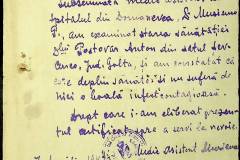 Subsemnatul medic
spitalul din Domanevca, D. Mureșanu
P., am examinat starea sănătății
lui Postovan Anton din satul Sev-
Jud. Golta, și am constatat că
este deplin sănătos și nu suferă de
nici o boală infectocontagioasă.
Drept care i-am eliberat prezen-
tul certificat spre a servi la nevoie.
Medic asistent